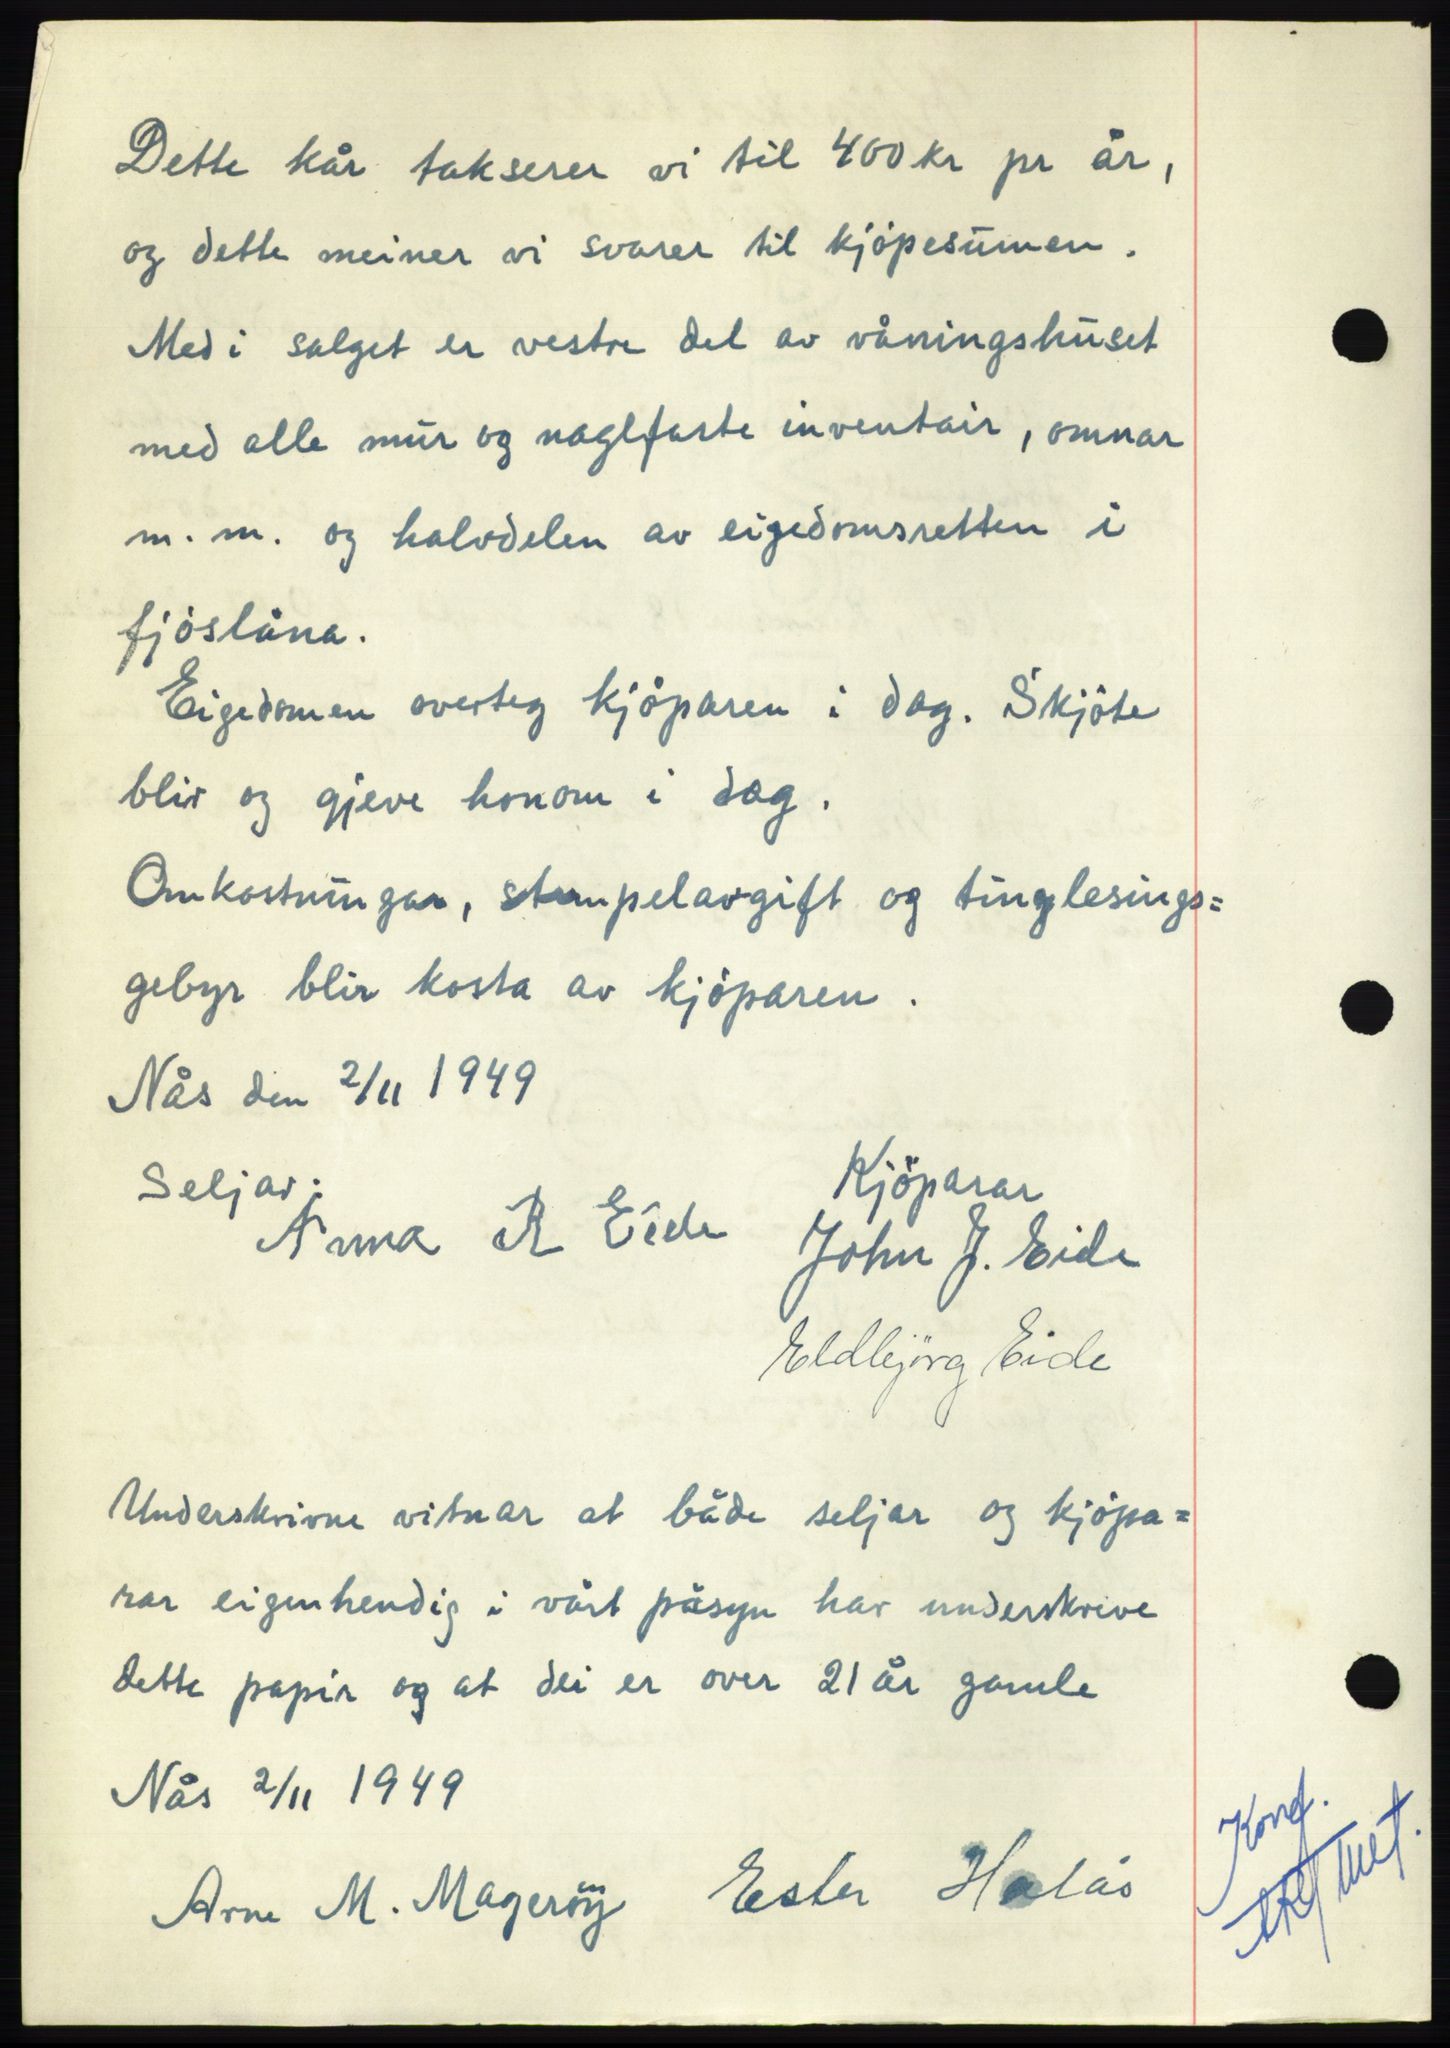 Dette kår takserer vi til 400 kr pr år,
og dette meiner vi svarer til kjöpesumen.
Med i salget er vestre del av våningshuset
med alle mur og naglfaste inventair, omnar
m.m. og halvdelen av eigedomsretten i
fjöslåna.
Eigedomen overteg kjöparen i dag. Skjöte
blir og gjeve honom i dag.
Omkostningar, stempelavgift og tinglesings=
gebyr blir kosta av kjöparen.
Nås den 2/11 1949
Seljar: Kjöparar
Anna R Eide John J. Eide
Eldbjörg Eide
Underskrivne vitnar at både seljar og kjöpa=
rar eigenhendig i vårt påsyn har underskrive
dette papir og at dei er over 21 år gamle
Nås 2/11 1949
Arne M. Mageröy Ester Halås
Konf.